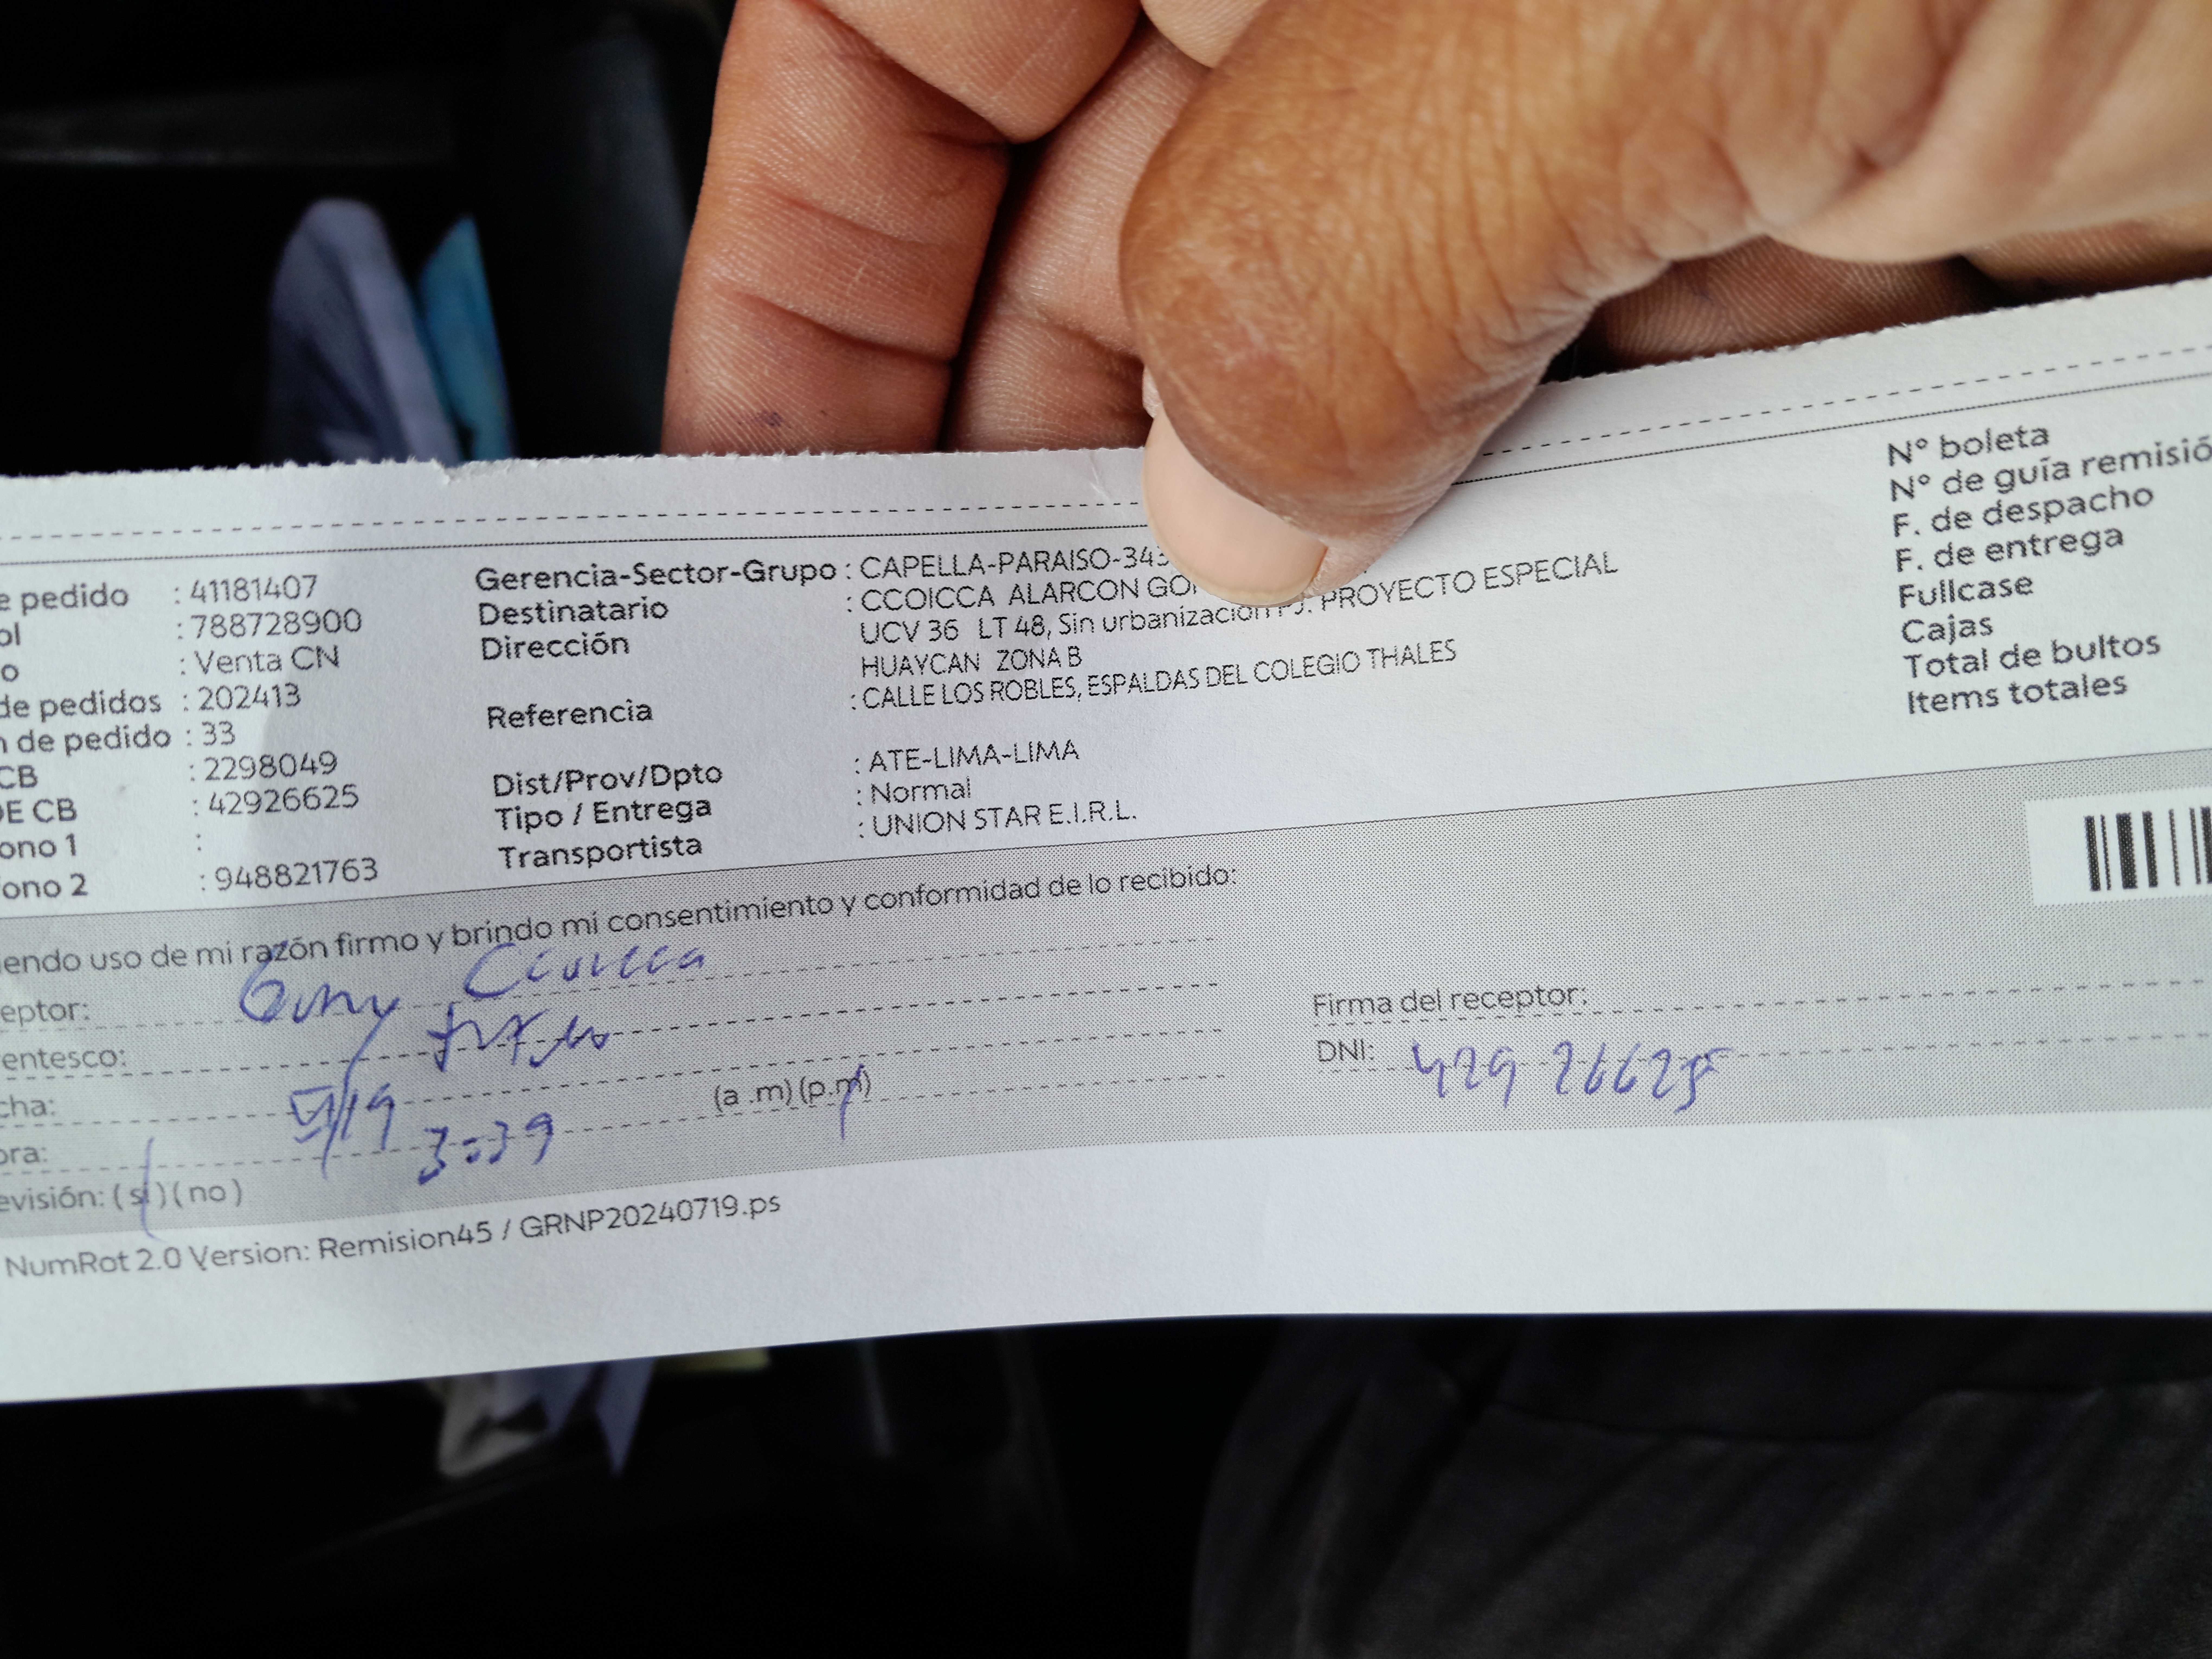 e pedido : 41181407
ol : 788728900
o : Venta CN
de pedidos : 202413
n de pedido : 33
CB : 2298049
DE CB : 42926625
ono 1 :
ono 2 : 948821763
Gerencia-Sector-Grupo : CAPELLA-PARAISO-343
Destinatario : CCOICCA ALARCON GO
Dirección UCV 36 LT 48, Sin urbanización PJ. PROYECTO ESPECIAL
HUAYCAN ZONA B
Referencia : CALLE LOS ROBLES, ESPALDAS DEL COLEGIO THALES
Dist/Prov/Dpto : ATE-LIMA-LIMA
Tipo / Entrega : Normal
Transportista : UNION STAR E.I.R.L.
N° boleta
N° de guía remisió
F. de despacho
F. de entrega
Fullcase
Cajas
Total de bultos
Items totales
iendo uso de mi razón firmo y brindo mi consentimiento y conformidad de lo recibido:
eptor: Ccoicca
entesco:
cha: /19
ora: 3:39 (a .m) (p.m)
evisión: ( si ) ( no )
Firma del receptor:
DNI: 42926625
NumRot 2.0 Version: Remision45 / GRNP20240719.ps